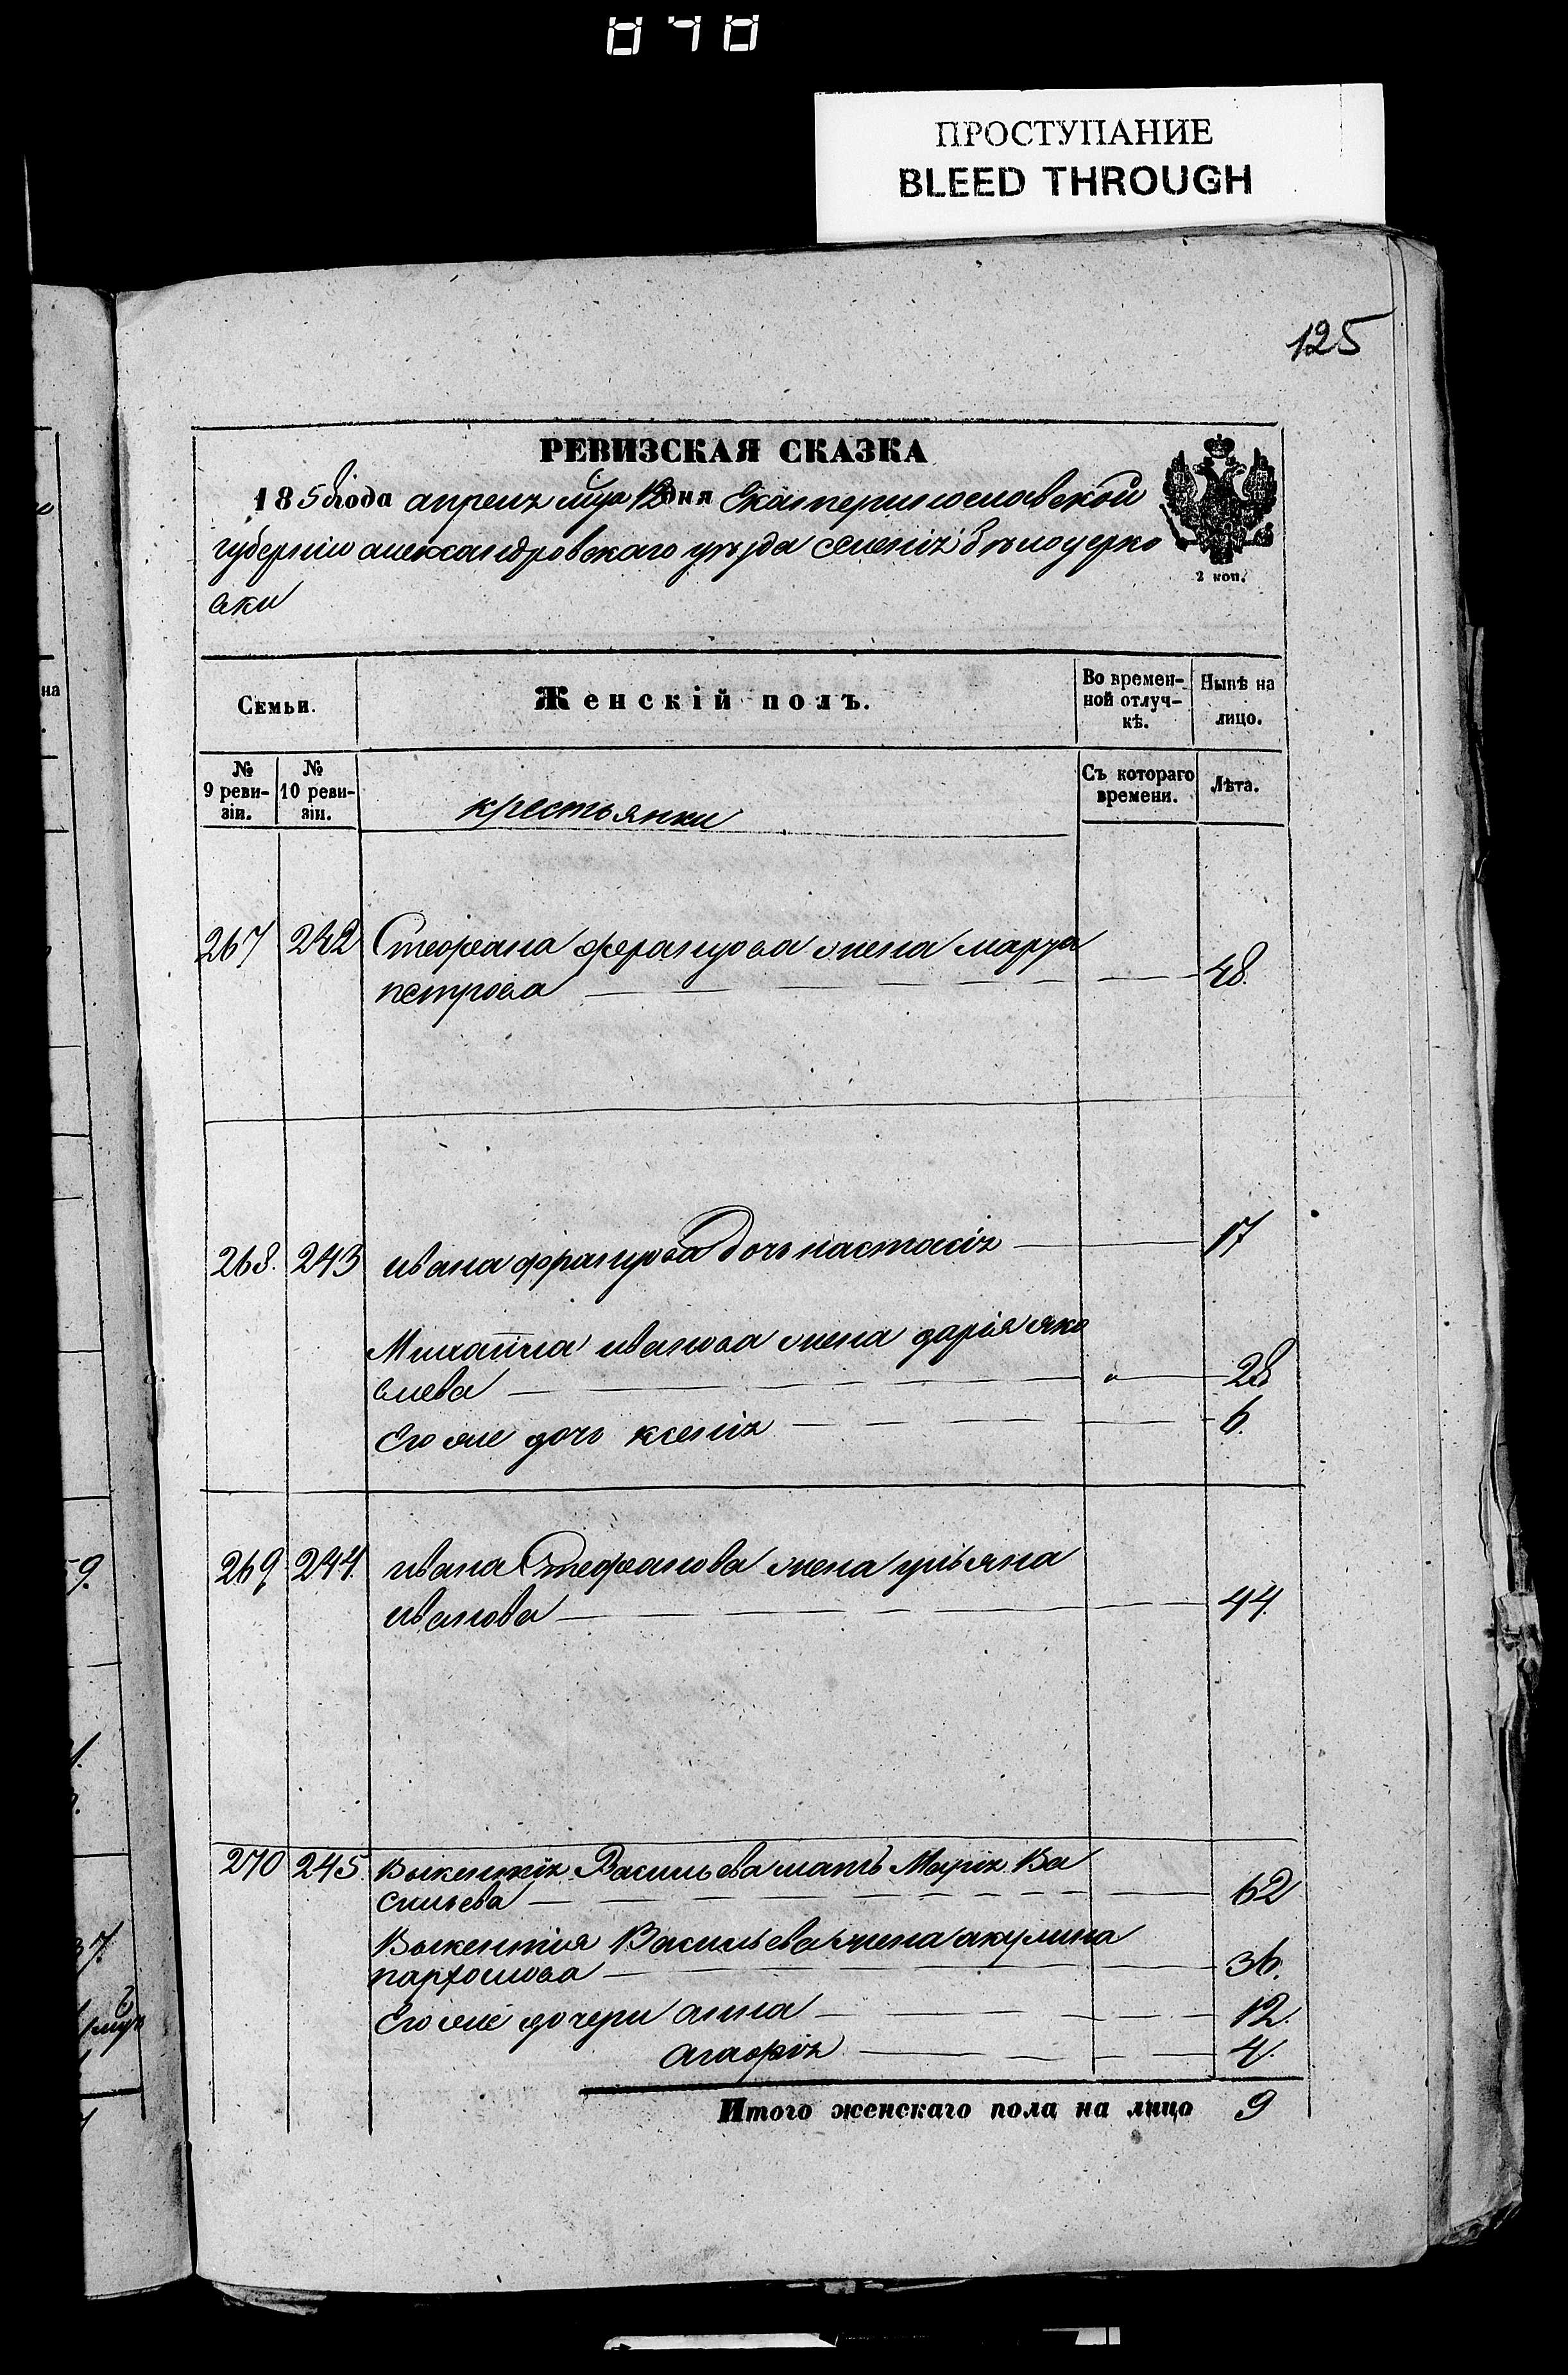 070
ПРОСТУПАНИЕ
BLEED THROUGH
125
РЕВИЗСКАЯ СКАЗКА
1858 года апреля мца 12 дня Екатеринославской
губерніи александровскаго уѣзда селенія бѣлоцерко
вки
2 коп.
Семьи.
Женскій полъ.
Во времен-
ной отлуч-
кѣ.
Нынѣ на
лицо.
№
9 реви-
зіи.
№
10 реви-
зіи.
крестьянки
Съ котораго
времени.
Лѣта.
267 242 Стефана францова жена марѳа
петрова 48.
268. 243 ивана францова дочь настасія 17
Михайла иванова жена дарія яко
влева 28
Его же дочь ксенія 6.
269. 244. ивана Стефанова жена ульяна
иванова 44.
270 245. Выкентія Васильева мать Марія Ва
сильева 62
Выкентія Васильева жена акулина
пархомова 36.
Его же дочери анна 12.
агафія 4.
Итого женскаго пола на лицо 9
на
9.
37.